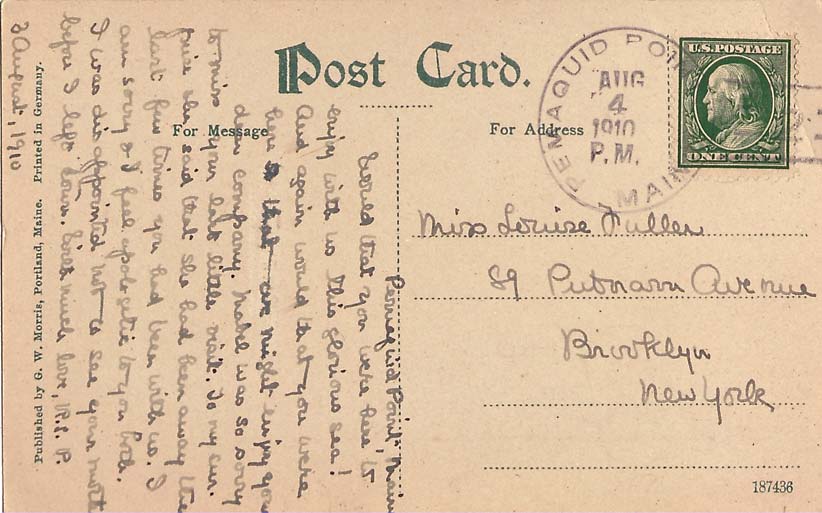 Post Card.
For Message
For Address
PEMAQUID POI
AUG
4
1910
P.M.
MAINE
U.S. POSTAGE
ONE CENT
Miss Louise Fuller
89 Putnam Avenue
Brooklyn
New York
187436
Pemaquid Point, Maine
Would that you were here, to
enjoy with us this glorious sea!
And again would that you were
here & that we might enjoy your
dear company. Mabel was so sorry
to miss your last little visit. To my sur-
prise she said that she had been away the
last few times you had been with us. I
am sorry & I feel apologetic to you both.
I was disappointed not to see your mother
before I left town. With much love, R. S. P.
3 August, 1910
Published by G. W. Morris, Portland, Maine. Printed in Germany.